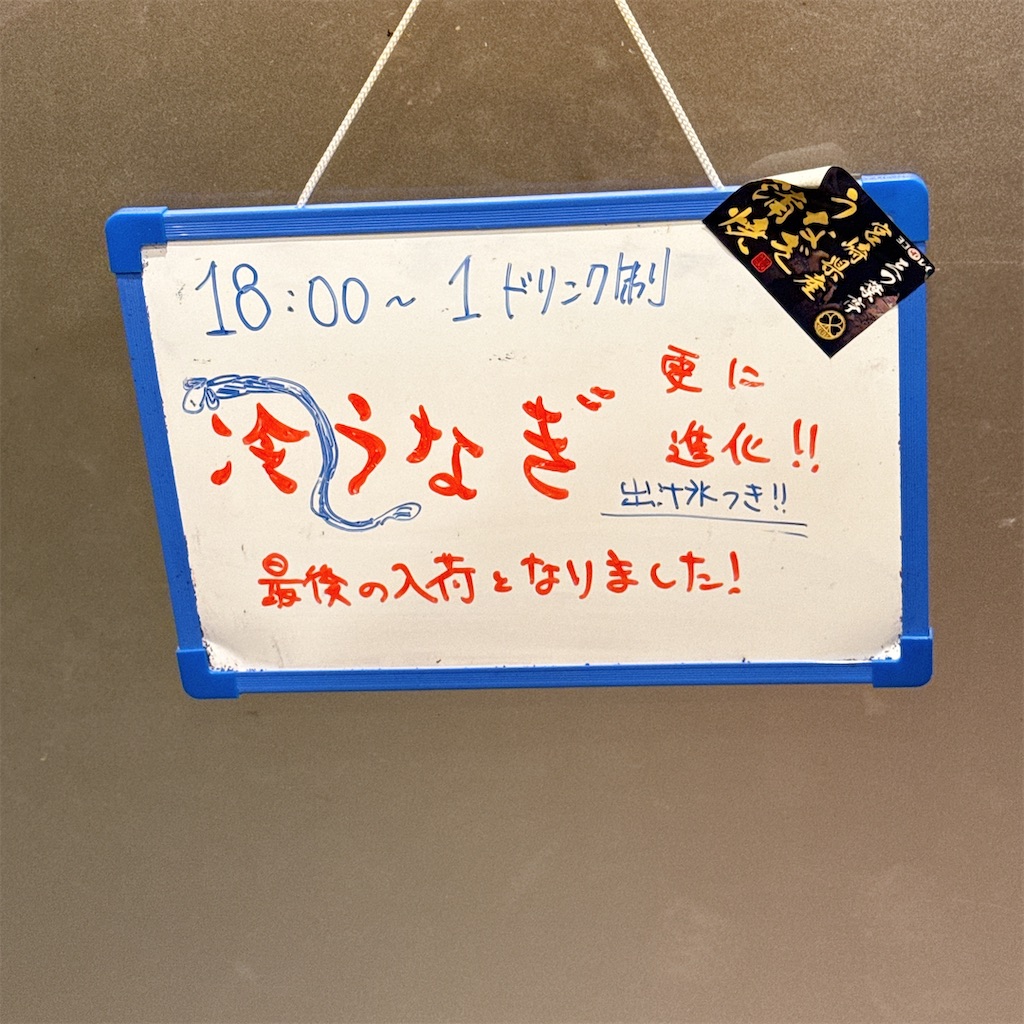 18:00~ 1ドリンク制
冷うなぎ
更に
進化!!
出汁氷つき!!
最後の入荷となりました!
宮崎県産
うなぎ
蒲焼